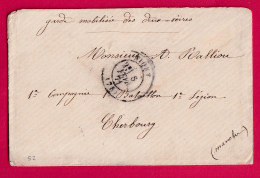 garde mobilisée des deux-sèvres
Monsieur A. Rallion
1re Compagnie 1er Bataillon 1re Légion
Cherbourg
(manche)